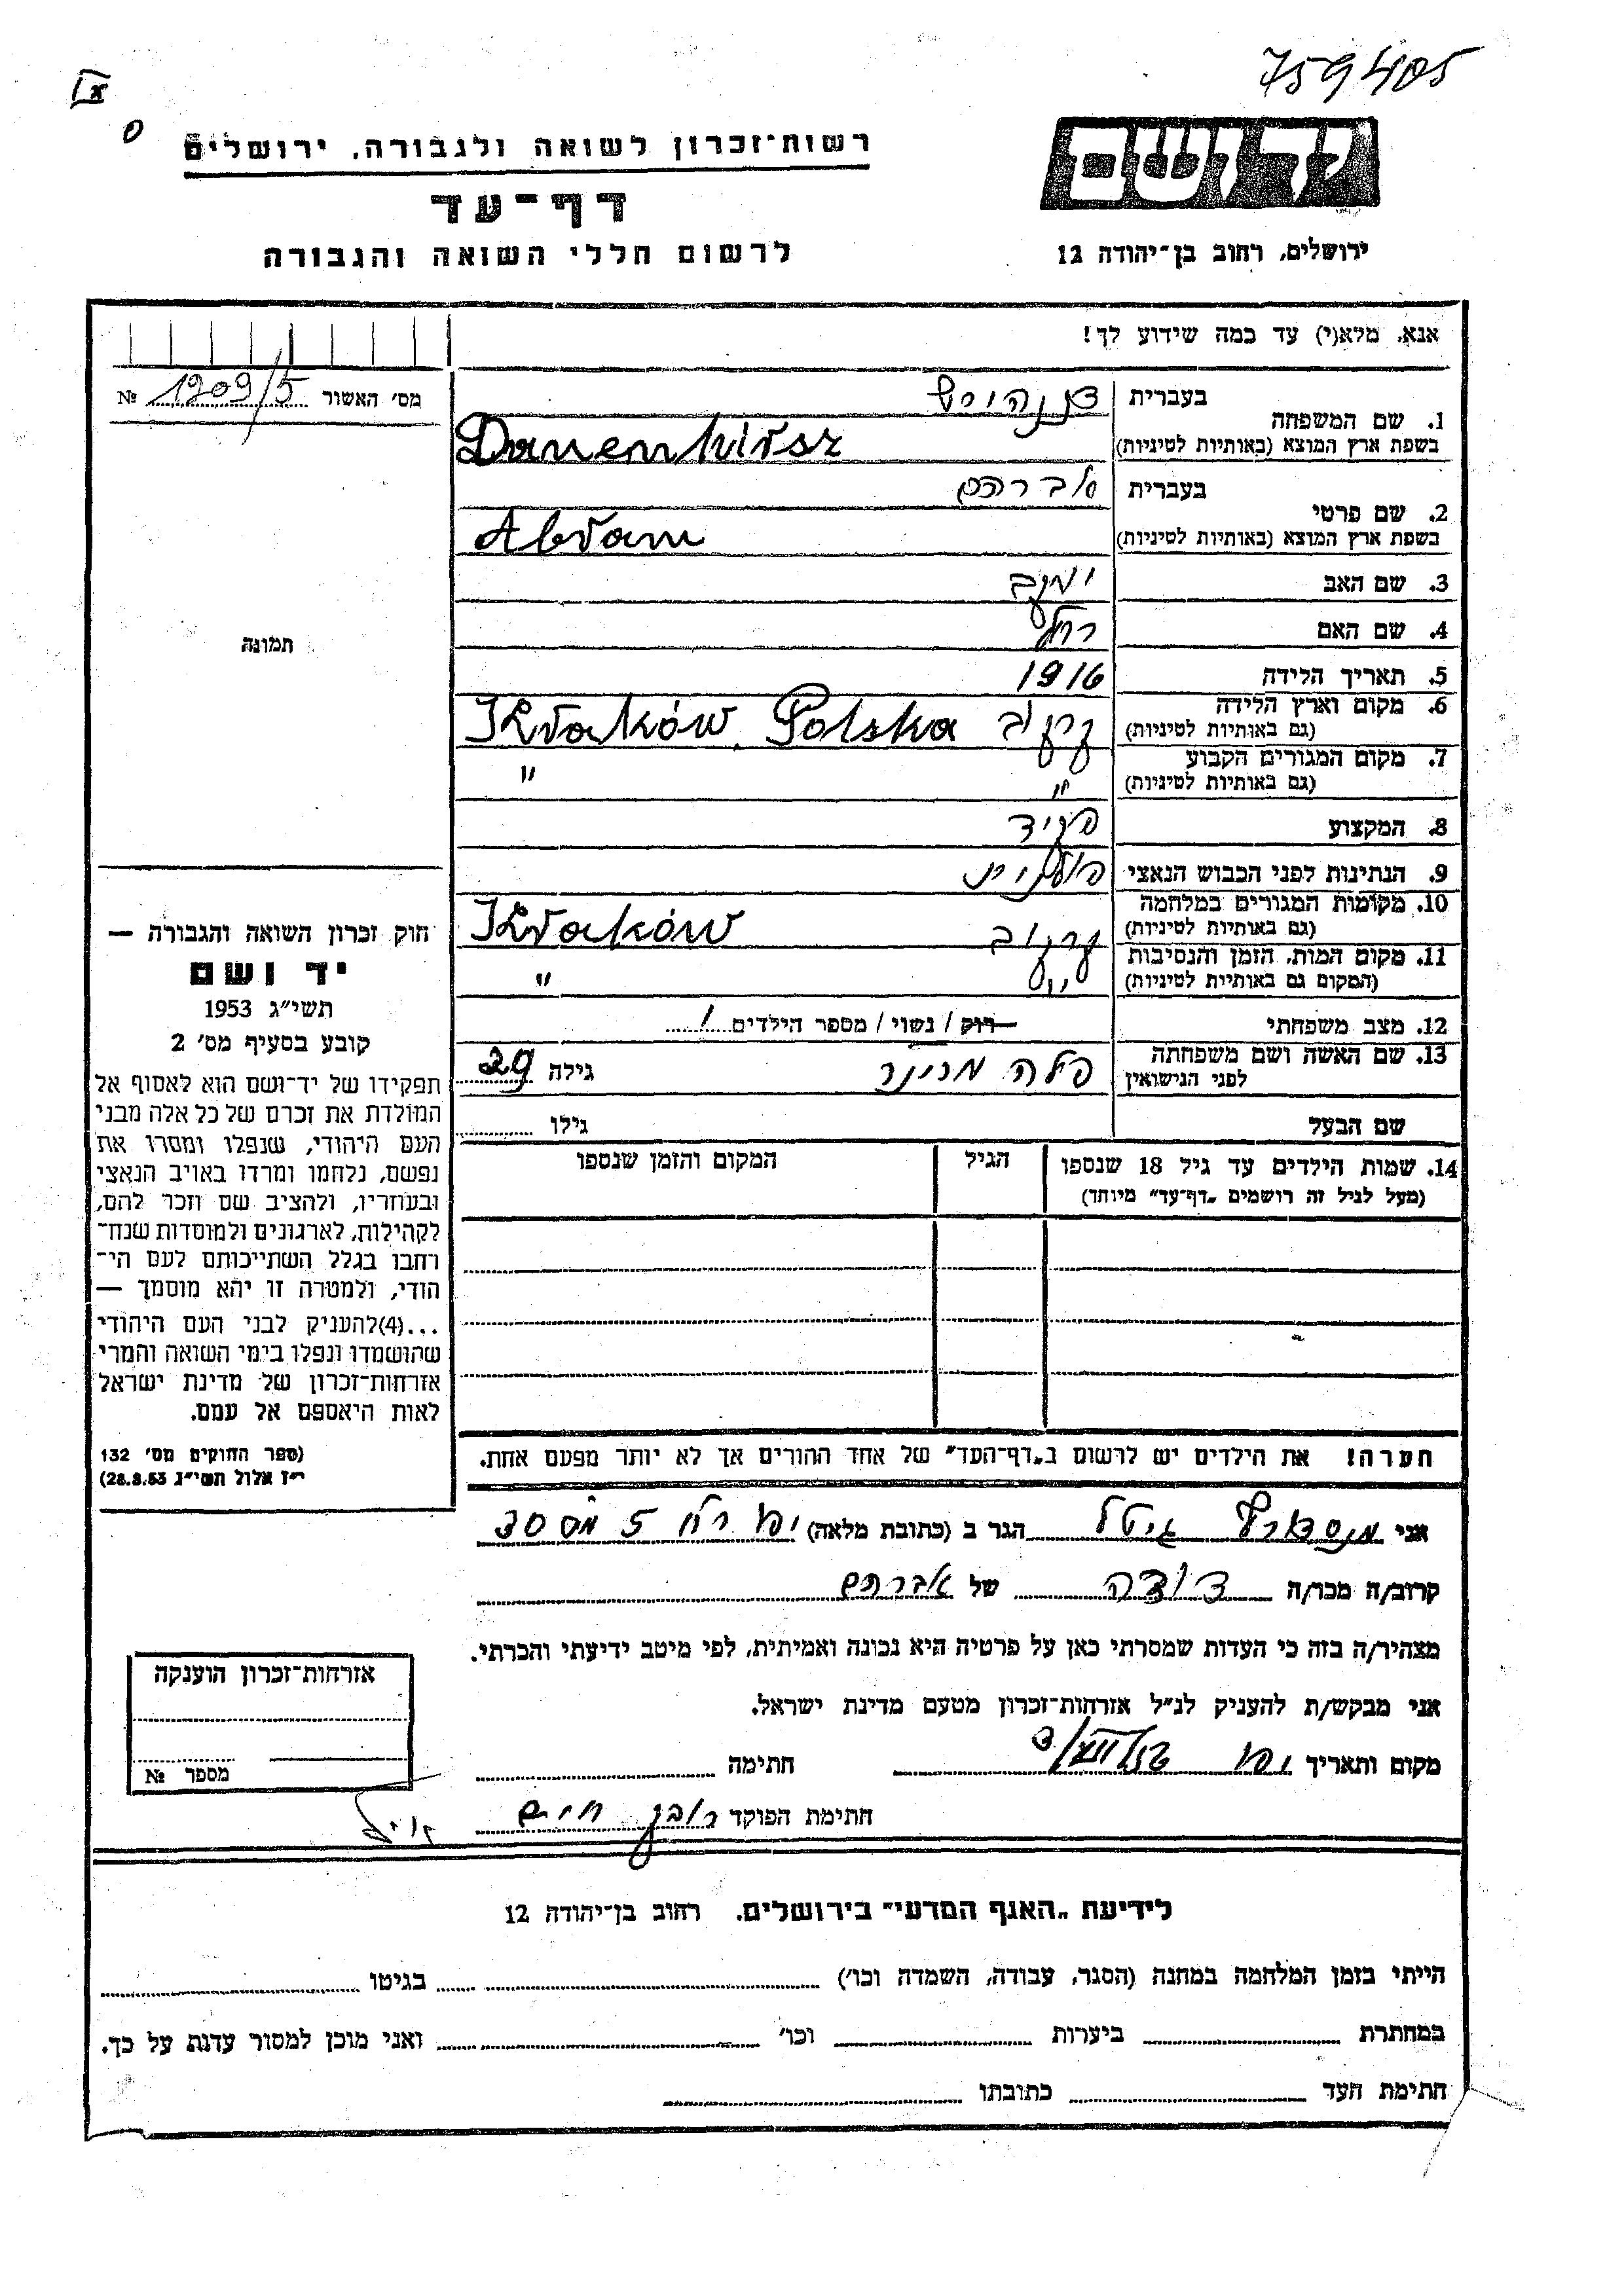 759405
רשות־זכרון לשואה ולגבורה, ירושלים
יד ושם
דף־עד
לרשום חללי השואה והגבורה
ירושלים, רחוב בן־יהודה 12
אנא, מלא(י) עד כמה שידוע לך!
מס' האשור 1209/5 №
1. שם המשפחה
בעברית דננהירש
בשפת ארץ המוצא (באותיות לטיניות) Danenhirsz
2. שם פרטי
בעברית אברהם
בשפת ארץ המוצא (באותיות לטיניות) Abram
3. שם האב יעקב
4. שם האם רחל
5. תאריך הלידה 1916
6. מקום וארץ הלידה
(גם באותיות לטיניות) קרקוב Kraków, Polska
7. מקום המגורים הקבוע
(גם באותיות לטיניות) " "
8. המקצוע פקיד
9. הנתינות לפני הכבוש הנאצי פולנית
10. מקומות המגורים במלחמה
(גם באותיות לטיניות) קרקוב Kraków
11. מקום המות, הזמן והנסיבות
(המקום גם באותיות לטיניות) " "
12. מצב משפחתי רווק / נשוי / מספר הילדים 1
13. שם האשה ושם משפחתה
לפני הנישואין פלה גילה 29
שם הבעל גילו
14. שמות הילדים עד גיל 18 שנספו
(מעל לגיל זה רושמים „דף־עד" מיוחד)
הגיל
המקום והזמן שנספו
הערה! את הילדים יש לרשום ב„דף־העד" של אחד ההורים אך לא יותר מפעם אחת.
תמונה
חוק זכרון השואה והגבורה —
יד ושם
תשי"ג 1953
קובע בסעיף מס' 2
תפקידו של יד־ושם הוא לאסוף אל
המולדת את זכרם של כל אלה מבני
העם היהודי, שנפלו ומסרו את
נפשם, נלחמו ומרדו באויב הנאצי
ובעוזריו, ולהציב שם וזכר להם,
לקהילות, לארגונים ולמוסדות שנח־
רבו בגלל השתייכותם לעם הי־
הודי, ולמטרה זו יהא מוסמך —
...(4) להעניק לבני העם היהודי
שהושמדו ונפלו בימי השואה והמרי
אזרחות־זכרון של מדינת ישראל
לאות היאספם אל עמם.
(ספר החוקים מס' 132
י"ז אלול תשי"ג 28.8.53)
אני גיטל הגר ב (כתובת מלאה) יפו רח 5 מס 30
קרוב/ה מכר/ה דודה של אברהם
מצהיר/ה בזה כי העדות שמסרתי כאן על פרטיה היא נכונה ואמיתית, לפי מיטב ידיעתי והכרתי.
אני מבקש/ת להעניק לנ"ל אזרחות־זכרון מטעם מדינת ישראל.
מקום ותאריך יפו חתימה
חתימת הפוקד רובין חיים
אזרחות־זכרון הוענקה
מספר №
לידיעת „האגף המדעי" בירושלים, רחוב בן־יהודה 12
הייתי בזמן המלחמה במחנה (הסגר, עבודה, השמדה וכו') בגיטו
במחתרת ביערות וכו' ואני מוכן למסור עדות על כך.
חתימת העד כתובתו